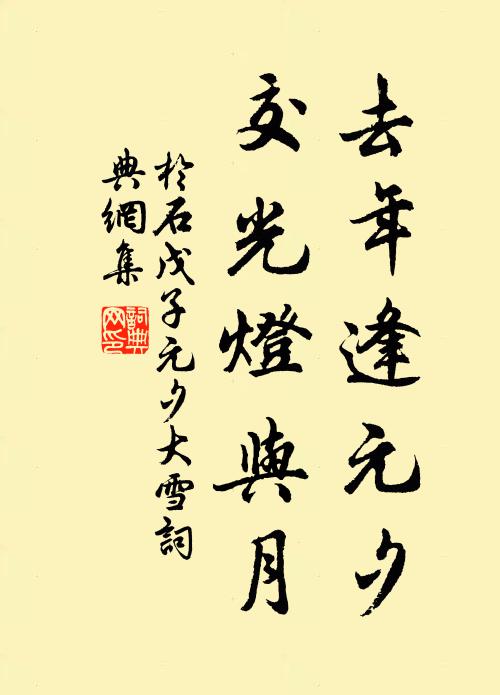 去年逢元夕
交光燈與月
於石戊子元夕大雪詞
典網集
詞典
网印